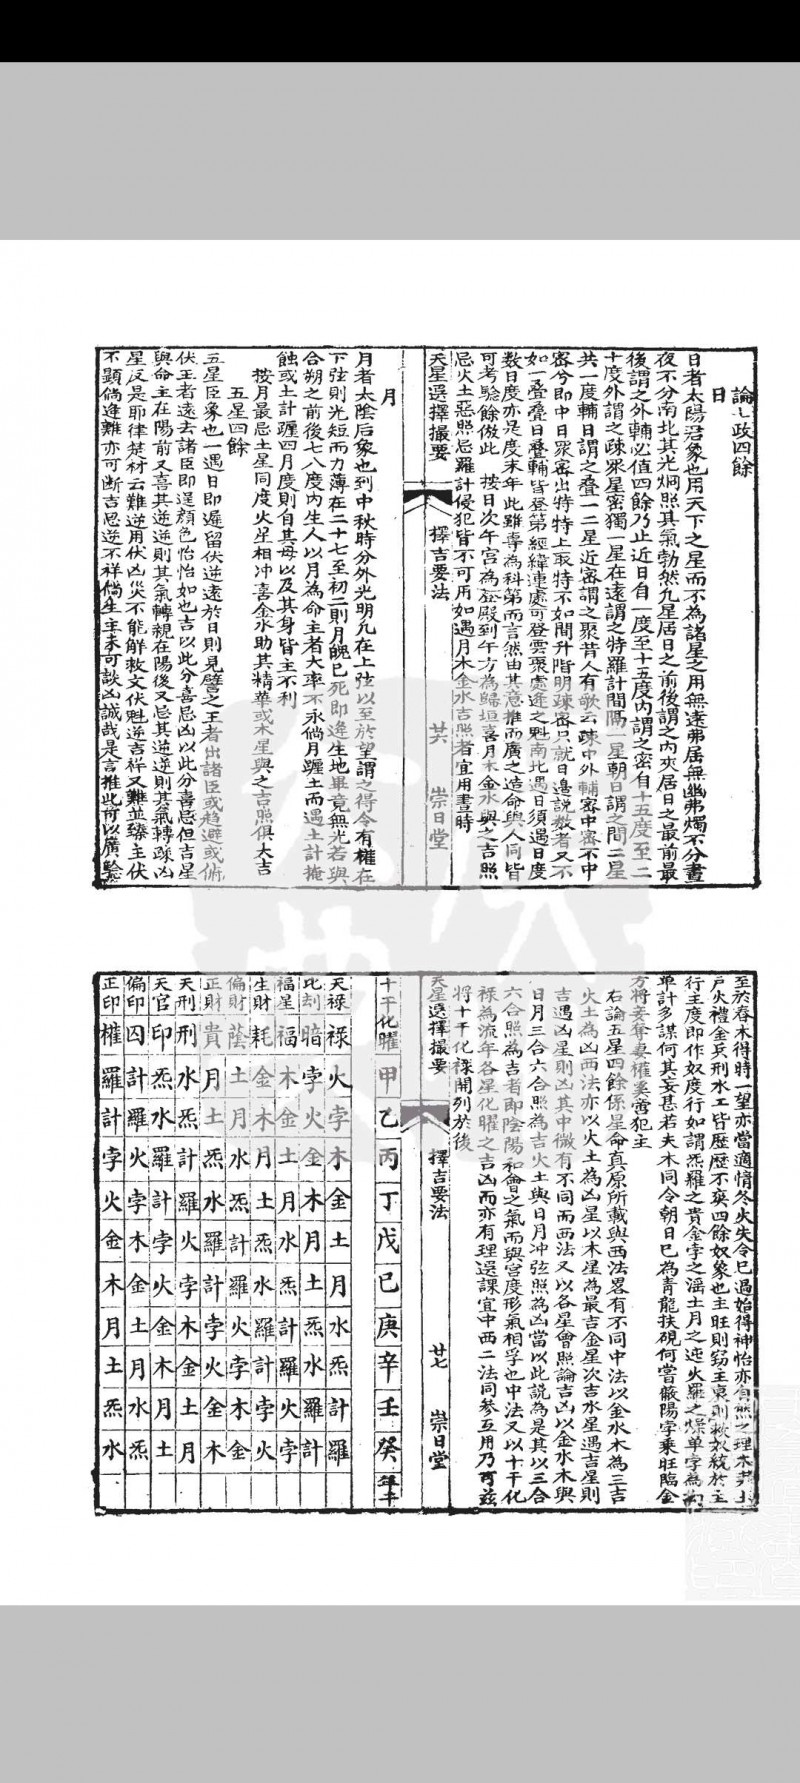 論七政四餘
日
日者太陽君象也用天下之星而不為諸星之用無遠弗屆無幽弗燭不分晝
夜不分南北其光烱照其氣勃然九星居日之前後謂之內夾居日之最前最
後謂之外輔必值四餘乃止近日自一度至十五度內謂之密自十五度至二
十度外謂之疎眾星密獨一星在遠謂之特羅計間隔一星朝日謂之間二星
共一度輔日謂之叠一二星近密謂之聚昔人有歌云疎中外輔密中密不中
密兮即中日眾密出特特上取特不如間升階明疎密只就日邊説數者又不
如一叠叠日叠輔皆登第經緯連處可登雲聚處逆之魁南北遇日須遇日度
數日度亦是度末年此雖專為科第而言然由其意推而廣之造命與人同皆
可考驗餘倣此　按日次午宮為登殿到午方為歸垣喜月木金水與之吉照
忌火土惡照忌羅計侵犯皆不可用如遇月木金水吉照者宜用晝時
天星選擇撮要　擇吉要法　共　崇日堂
月
月者太陰后象也到中秋時分外光明凢在上弦以至於望謂之得令有權在
下弦則光短而力薄在二十七至初二則月魄已死即逄生地畢竟無光若與
合朔之前後七八度內生人以月為命主者大率不永倘月躔土而遇土計掩
蝕或土計躔四月度則自其母以及其身皆主不利
按月最忌土星同度火星相冲喜金水助其精華或木星與之吉照俱大吉
五星四餘
五星臣象也一遇日即遲留伏逆遠於日則見譬之王者出諸臣或趋避或俯
伏王者遠去諸臣即逞顔色怡怡如也吉以此分喜忌凶以此分喜忌但吉星
與命主在陽前又喜其逆逆則其氣轉親在陽後又忌其逆逆則其氣轉疎凶
星反是耶律楚材云難逆用伏凶災不能解救文伏魁逆吉祥又難並臻主伏
不顯倘逢難亦可斷吉忌逆不祥倘生主未可談凶誠哉是言推此可以廣驗
至於春木得時一望亦當適情冬火失令已過始得神怡亦自然之理木
户火禮金兵刑水工皆歷歷不爽四餘奴象也主旺則窃主衰則救奴統於主
行主度即作奴度行如謂炁羅之貴金孛之滛土月之迍火羅之燥单字為
单計多謀何其妄甚若夫木同令朝日已為青龍扶硯何當蔽陽孛乘旺臨金
方將妻奪妻權奚啻犯主
右論五星四餘係星命真原所載與西法畧有不同中法以金水木為三吉
火土為凶西法亦以火土為凶星以木星為最吉金星次吉水星遇吉星則
吉遇凶星則凶其中微有不同而西法又以各星會照論吉凶以金水木與
日月三合六合照為吉火土與日月冲弦照為凶當以此説為是其以三合
六合照為吉者即陰陽和會之氣而與宮度形氣相孚也中法又以十干化
禄為流年各星化曜之吉凶而亦有理選課宜中西二法同參互用乃可兹
將十干化禄開列於後
天星選擇撮要　擇吉要法　廿七　崇日堂
十干化曜　甲　乙　丙　丁　戊　己　庚　辛　壬　癸　年干
天禄　禄　火　孛　木　金　土　月　水　炁　計　羅
比刦　暗　孛　火　金　木　月　土　炁　水　羅　計
福星　福　木　金　土　月　水　炁　計　羅　火　孛
生財　耗　金　木　月　土　炁　水　羅　計　孛　火
偏財　蔭　土　月　水　炁　計　羅　火　孛　木　金
正財　貴　月　土　炁　水　羅　計　孛　火　金　木
天刑　刑　水　炁　計　羅　火　孛　木　金　土　月
天官　印　炁　水　羅　計　孛　火　金　木　月　土
偏印　囚　計　羅　火　孛　木　金　土　月　水　炁
正印　權　羅　計　孛　火　金　木　月　土　炁　水